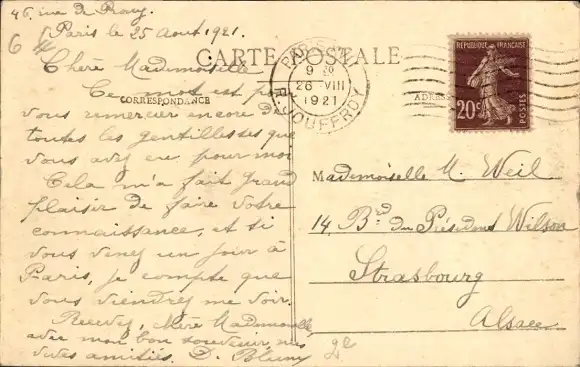 46, rue de
Paris le 25 Aout 1921.
CARTE POSTALE
Chère Mademoiselle
Ce mot est
CORRESPONDANCE
vous remercier encore de
toutes les gentillesses que
vous avez eu pour moi
Cela m'a fait grand
plaisir de faire votre
connaissance, et si
vous venez un jour à
Paris, je compte que
vous viendrez me voir.
Recevez, chère Mademoiselle,
avec mon bon souvenir, mes
amitiés.
2e
PARIS
9 20
26 VIII
1921
R. JOUFFROY
RÉPUBLIQUE FRANÇAISE
20c
POSTES
ADRESSE
Mademoiselle M. Weil
14, Bd du Président Wilson
Strasbourg
Alsace